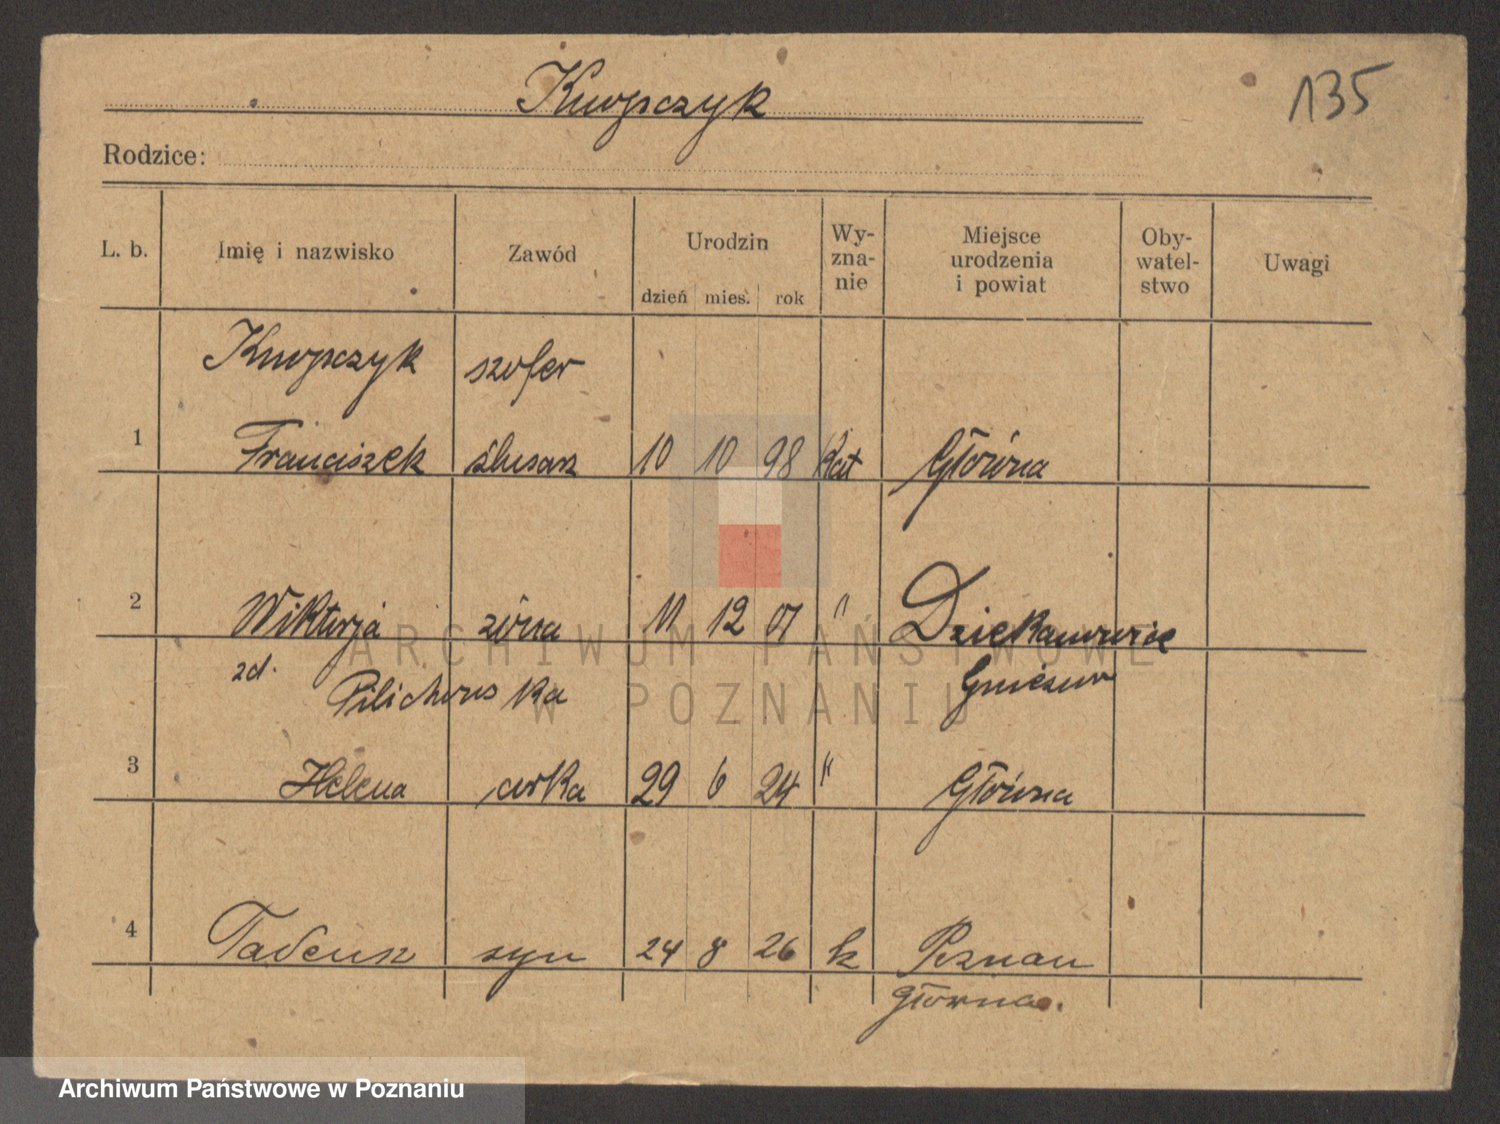 Knopczyk
135
Rodzice:
L. b. Imię i nazwisko Zawód Urodzin dzień mies. rok Wy-zna-nie Miejsce urodzenia i powiat Oby-watel-stwo Uwagi
Knopczyk szofer
1 Franciszek ślusarz 10 10 98 kat Główna
2 Wiktorja żona 11 12 01 " Dziekanowice
zd. Pilichowska Gniezno
3 Helena córka 29 6 24 " Główna
4 Tadeusz syn 24 8 26 k Poznań
Główna.
ARCHIWUM PAŃSTWOWE
W POZNANIU
Archiwum Państwowe w Poznaniu